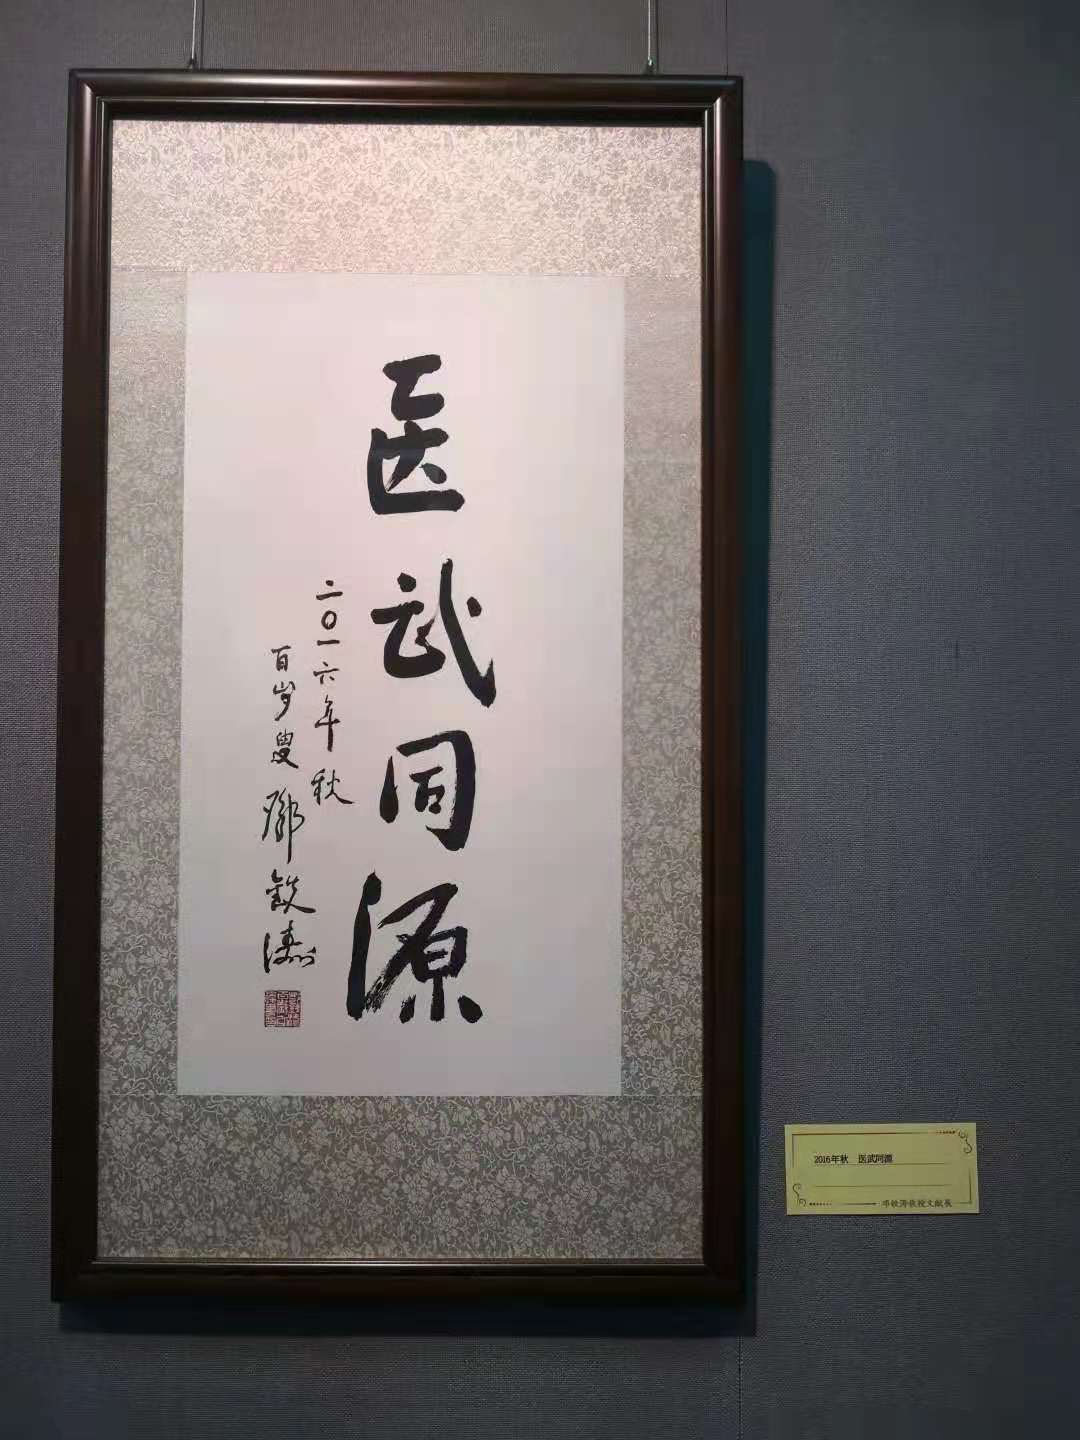 医武同源
二〇一六年秋
百岁叟 鄧鉄涛
2016年秋 医武同源
邓铁涛教授文献展